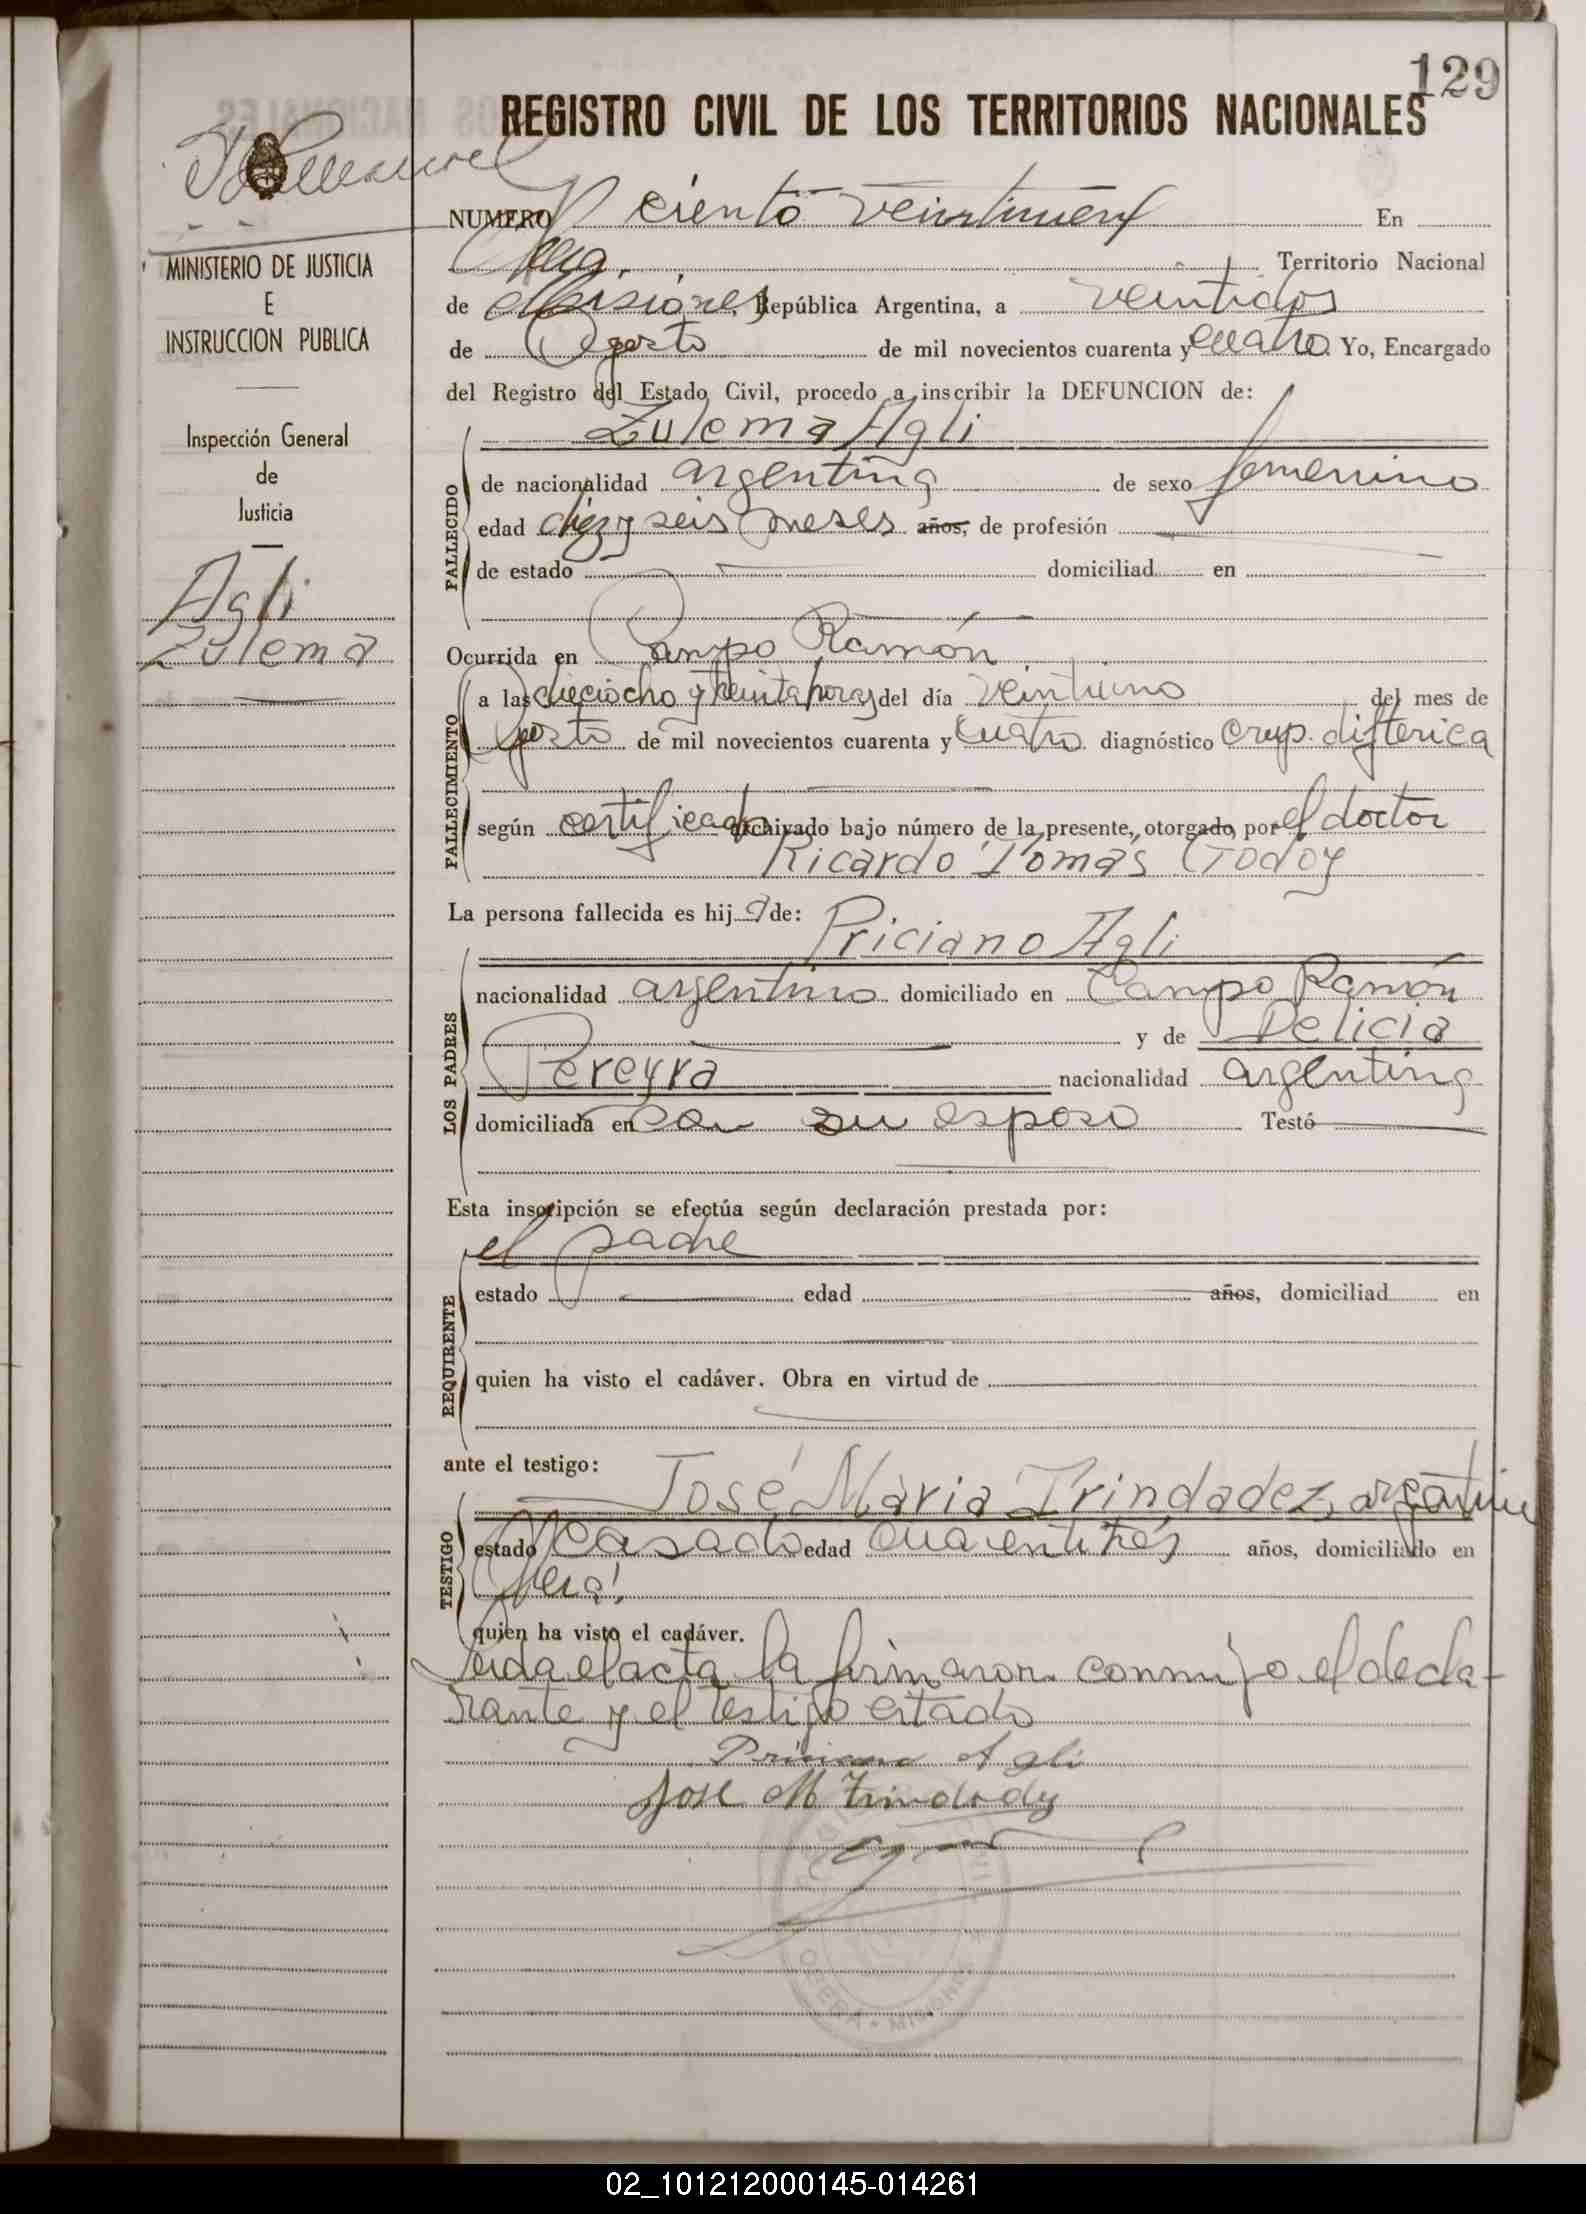 129
REGISTRO CIVIL DE LOS TERRITORIOS NACIONALES
NUMERO ciento veintinueve En
Oberá, Territorio Nacional
de Misiones, República Argentina, a veintidos
de Agosto de mil novecientos cuarenta y cuatro. Yo, Encargado
del Registro del Estado Civil, procedo a inscribir la DEFUNCION de:
MINISTERIO DE JUSTICIA
E
INSTRUCCION PUBLICA
Inspección General
de
Justicia
Agli
Zulema
FALLECIDO
Zulema Agli
de nacionalidad argentina de sexo femenino
edad diez y seis meses años, de profesión
de estado domiciliad en
Ocurrida en Campo Ramón
FALLECIMIENTO
a las dieciocho y treinta horas del día veintiuno del mes de
Agosto de mil novecientos cuarenta y cuatro diagnóstico crup. difterica
según certificado archivado bajo número de la presente, otorgado por el doctor
Ricardo Tomás Godoy
La persona fallecida es hija de:
LOS PADRES
Priciano Agli
nacionalidad argentino domiciliado en Campo Ramón
y de Delicia
Pereyra nacionalidad argentina
domiciliada en con su esposo Testó
Esta inscripción se efectúa según declaración prestada por:
REQUIRENTE
el padre
estado edad años, domiciliad en
quien ha visto el cadáver. Obra en virtud de
ante el testigo:
TESTIGO
José Maria Trindadez, argentino
estado casado edad cuarentitrés años, domiciliado en
Oberá
quien ha visto el cadáver.
Leida el acta la firmaron conmigo el decla-
rante y el testigo citado
Priciano Agli
Jose M Trindadez
OBERA * MISIONES
02_101212000145-014261